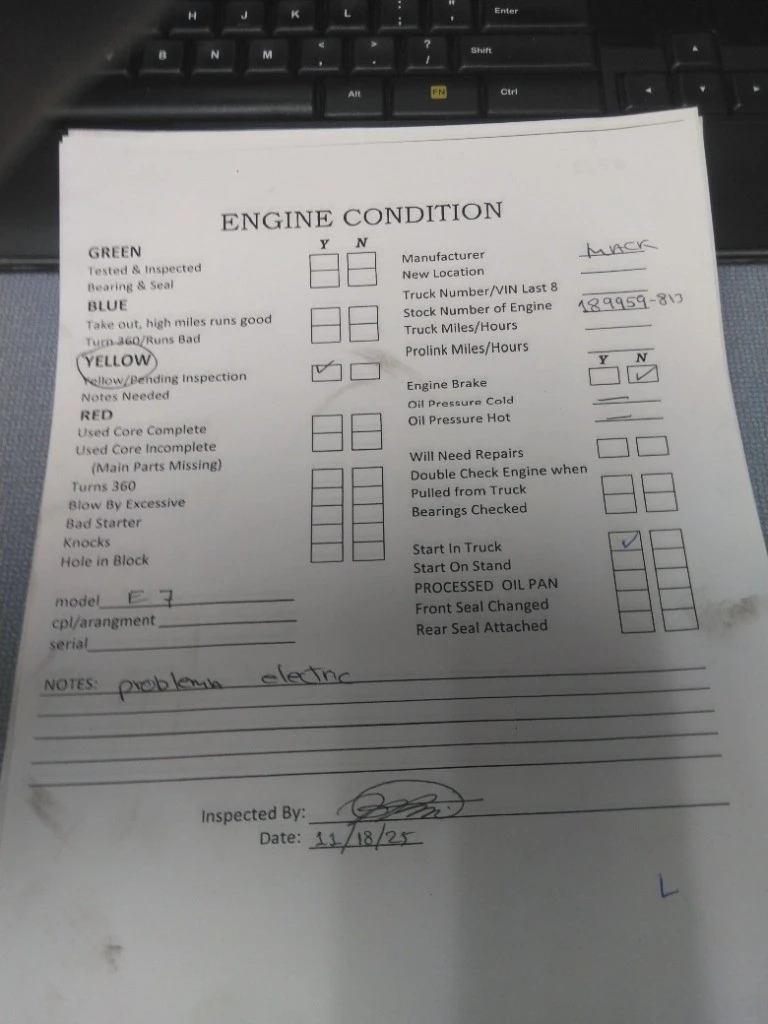 H J K L : ; " ' Enter
B N M < , > . ? / Shift
Alt FN Ctrl
ENGINE CONDITION
Y N
GREEN
Tested & Inspected
Bearing & Seal
BLUE
Take out, high miles runs good
Turn 360/Runs Bad
YELLOW
Yellow/Pending Inspection
Notes Needed
RED
Used Core Complete
Used Core Incomplete
(Main Parts Missing)
Turns 360
Blow By Excessive
Bad Starter
Knocks
Hole in Block
model E7
cpl/arangment
serial
Manufacturer MACK
New Location
Truck Number/VIN Last 8
Stock Number of Engine 189959-
Truck Miles/Hours
Prolink Miles/Hours
Y N
Engine Brake
Oil Pressure Cold
Oil Pressure Hot
Will Need Repairs
Double Check Engine when
Pulled from Truck
Bearings Checked
Start In Truck
Start On Stand
PROCESSED OIL PAN
Front Seal Changed
Rear Seal Attached
NOTES: problema electric
Inspected By:
Date: 11/18/25
L